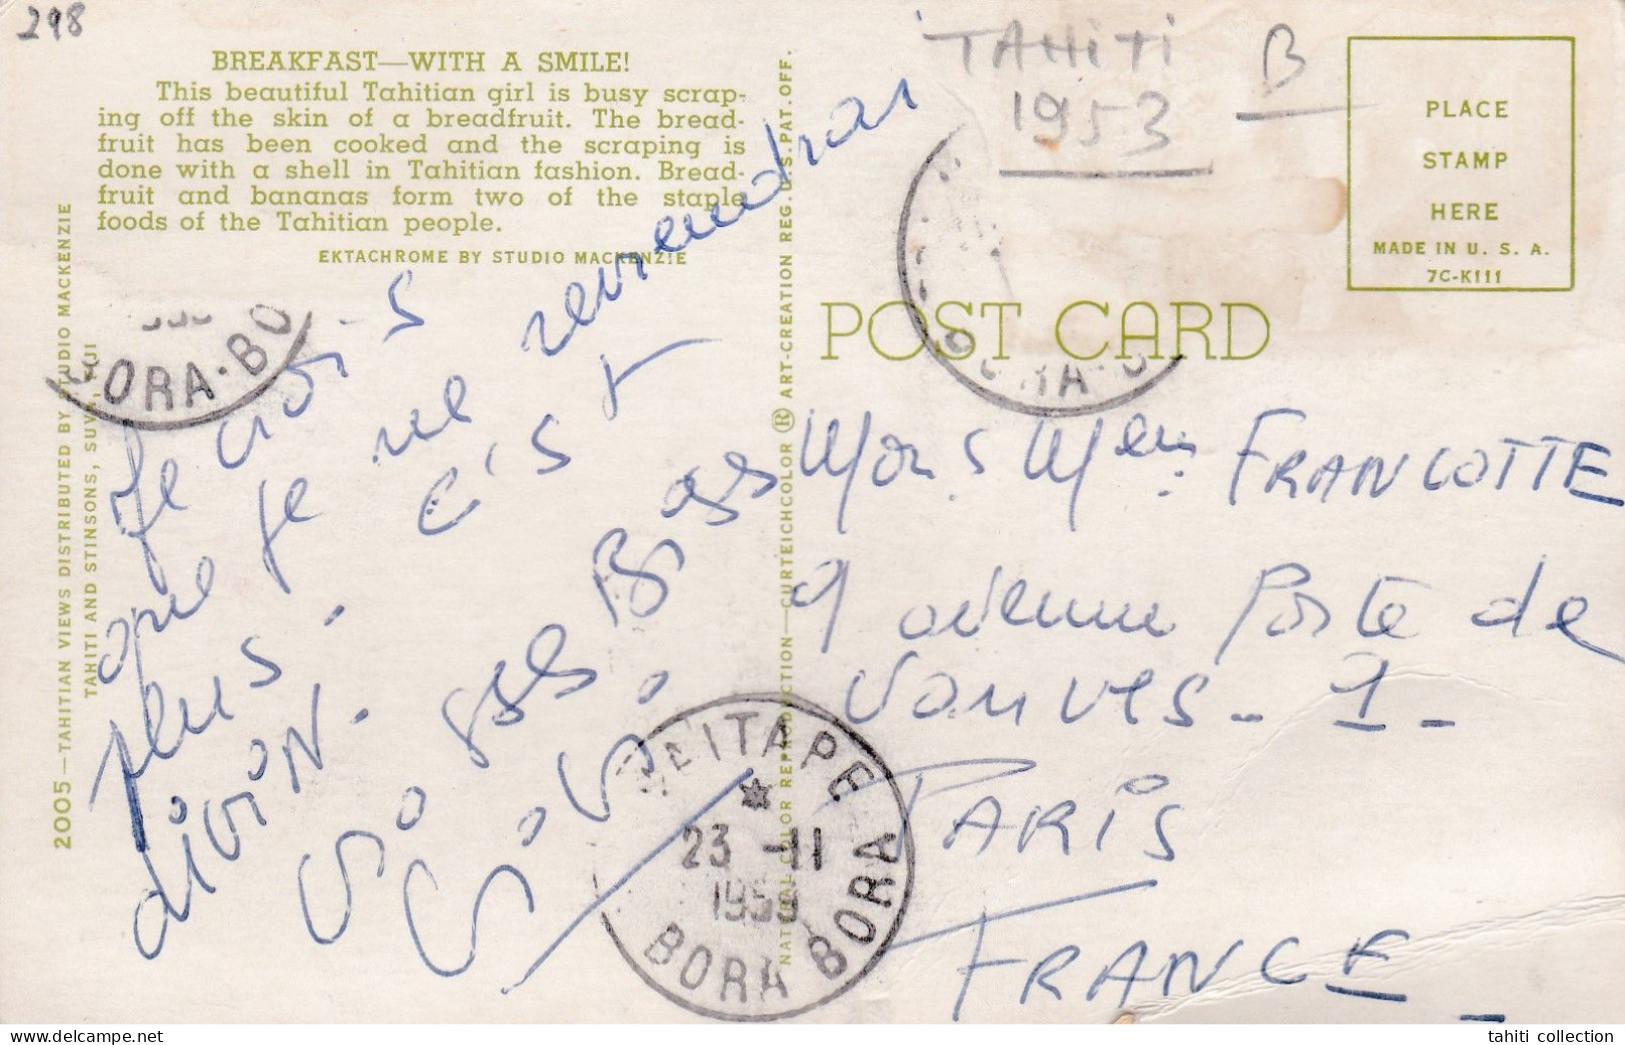 298
BREAKFAST—WITH A SMILE!
This beautiful Tahitian girl is busy scrap-
ing off the skin of a breadfruit. The bread-
fruit has been cooked and the scraping is
done with a shell in Tahitian fashion. Bread-
fruit and bananas form two of the staple
foods of the Tahitian people.
EKTACHROME BY STUDIO MACKENZIE
2005—TAHITIAN VIEWS DISTRIBUTED BY STUDIO MACKENZIE
TAHITI AND STINSONS, SUVA, FIJI
BORA-BO
Je crois
que je ne reviendrai
plus. c'est
divin.
Gros Bises
NATURAL COLOR REPRODUCTION—CURTEICHCOLOR ® ART-CREATION REG. U.S. PAT. OFF.
TAHITI
1953
B
PLACE
STAMP
HERE
MADE IN U. S. A.
7C-K111
POST CARD
BORA
Mons Mme FRANCOTTE
9 avenue Porte de
Vanves - 1 -
PARIS
FRANCE
VAITAPE
23 -11
195
BORA BORA
tahiti collection